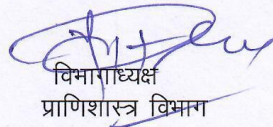 विभागाध्यक्ष
प्राणिशास्त्र विभाग